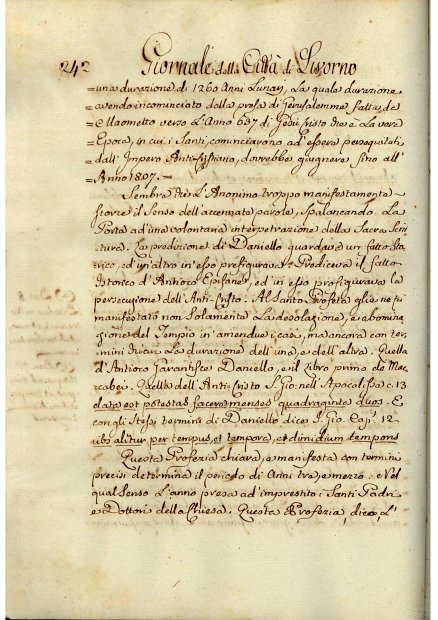 242 Giornale della Città di Livorno
= una durazione di 1260 Anni Lunari, La quale durazione
= avendo incominciato dalla presa di Gerusalemme fatta da
= Maometto verso L'Anno 637 di Gesù Cristo che è La vera
= Epoca, in cui i Santi cominciavano ad essere perseguitati
dall' Impero Anti-Cristiano, dovrebbe giugnere sino all'
= Anno 1897. =
Sembra che L'Anonimo troppo manifestamente
storce il senso dell'accennate parole, spalancando La
Porta ad una volontaria interpetrazione della Sacra Scrit
tura. La predizione di Daniello guardava un fatto Sto
rico, ed un'altro in esso prefigurava. Prediceva il fatto
istorico d'Antioco Epifane, ed in esso prefigurava la
persecuzione dell'Anti-Cristo. Al Santo Profeta glie ne fu
manifestato non solamente La desolazione, e abomina
zione del Tempio in amendue i casi, ma ancora con ter
mini La durazione dell'una, e dell'altra. Quella
d'Antioco Daniello, e il Libro primo de Mac
cabei. Quella dell'Anti-Cristo S. Gio: nell'Apocalisse c. 13
data est potestas facere menses quadraginta duos. E
con gli stessi termini di Daniello dice S. Gio. Cap. 12
ubi alitur per tempus, et tempora, et dimidium temporis
Questa Profezia chiara, e manifesta con termini
precisi determina il periodo di Anni tre, e mezzo. e Nel
qual senso L'anno presa ad'imprestito i Santi Padri
e Dottori della Chiesa. Questa Profezia, dico, L'